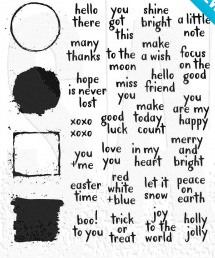 hello
there
you
got
this
shine
bright
a little
note
many
thanks
to the
moon
make
a wish
focus
on the
good
hope
is never
lost
miss
you
hello
friend
you
are my
happy
xoxo
xoxo
good
luck
make
today
count
you
+me
love
you
in my
heart
merry
and
bright
easter
time
red
white
+blue
let it
snow
peace
on
earth
boo!
to you
trick
or
treat
joy
to the
world
holly
jolly